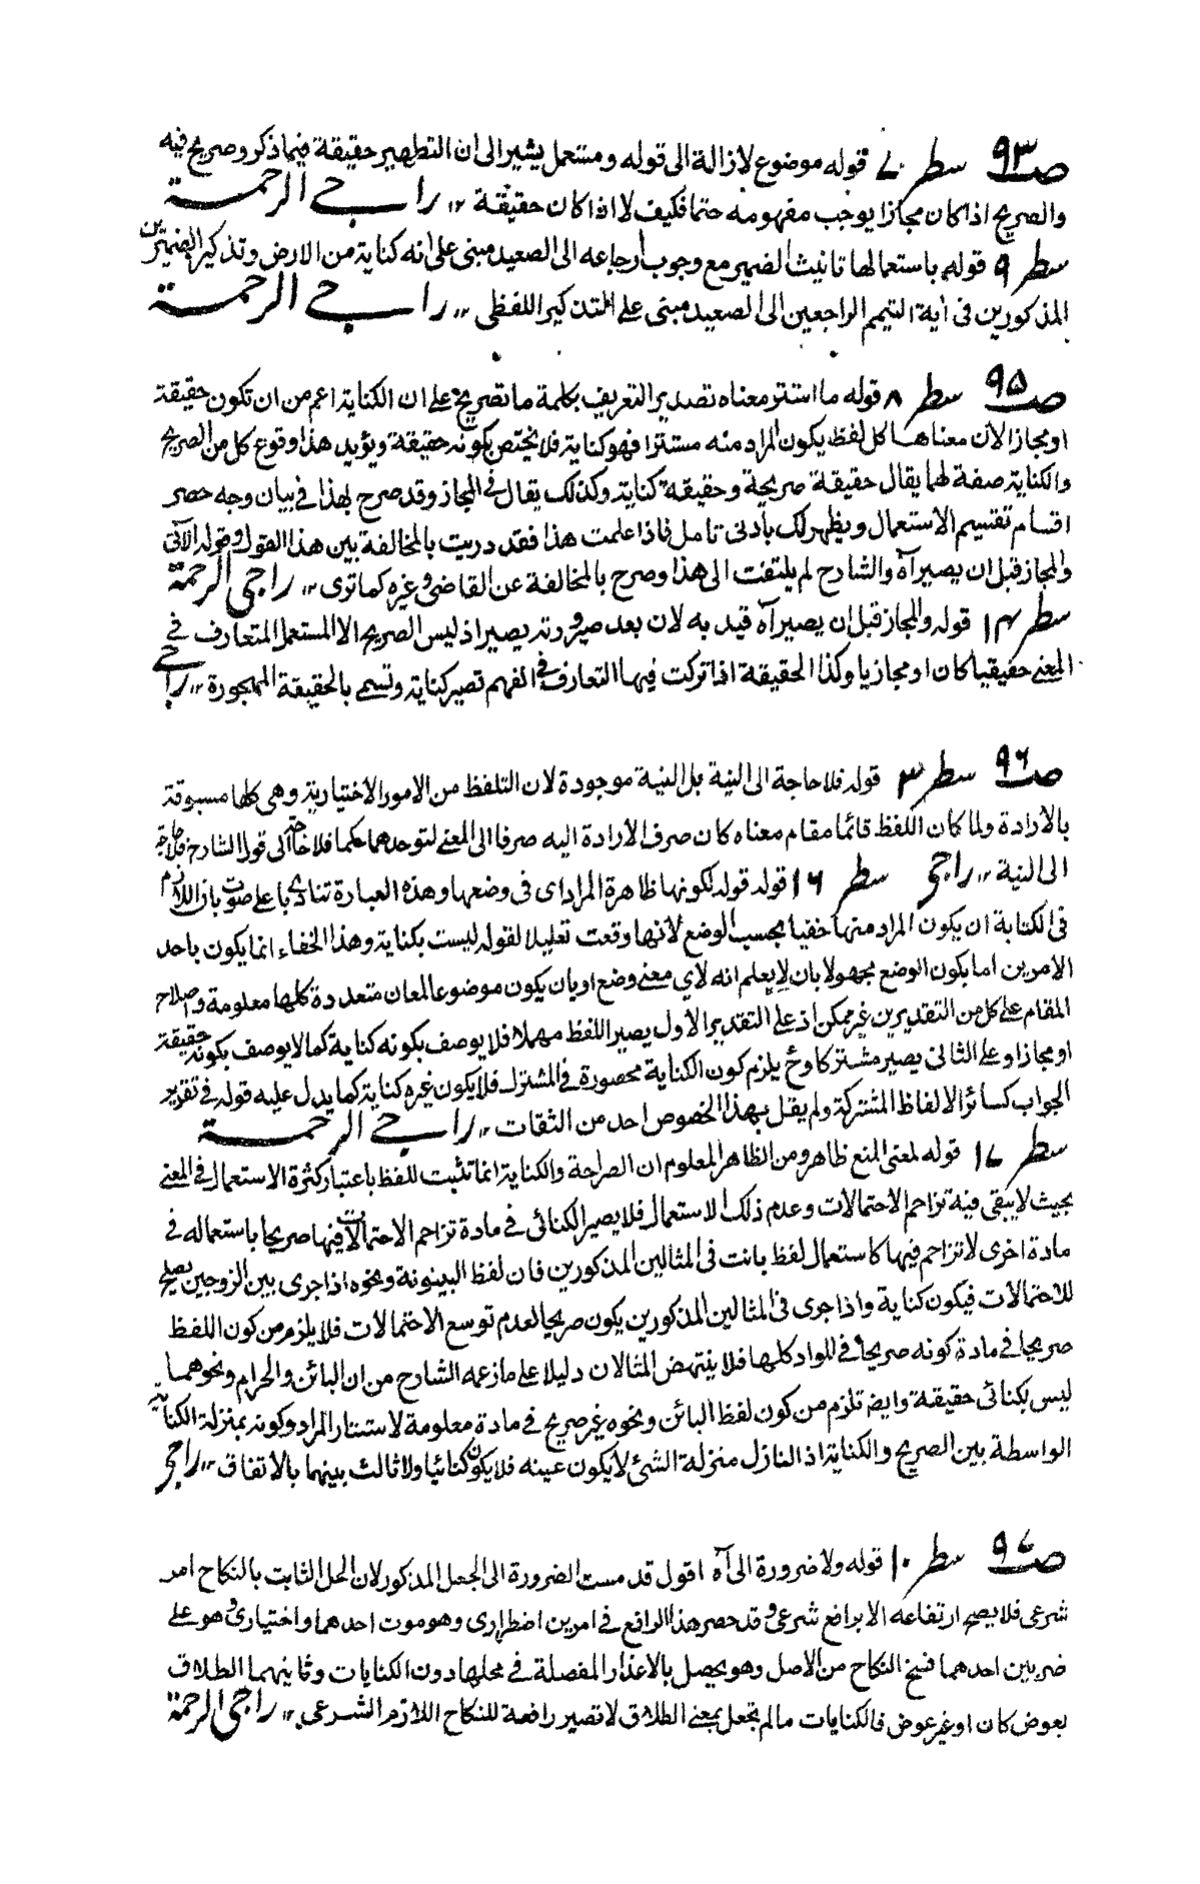 صـ٩٣ سطر ٧ قوله موضوع لازالة الى قوله ومستعمل يشير الى ان التطهير حقيقة فيما ذكر وصريح فيه
والصريح اذا كان مجازا يوجب مفهومه حتما فكيف لا اذا كان حقيقة ١٢ راجي الرحمة
سطر ٩ قوله باستعمالها تانيث الضمير مع وجوب ارجاعه الى الصعيد مبنى على انه كناية من الارض وتذكير الضميرين
المذكورين فى اية التيمم الراجعين الى الصعيد مبنى على التذكير اللفظى ١٢ راجي الرحمة
صـ٩٥ سطر ٨ قوله ما استتر معناه تصدير التعريف بكلمة ما تصريح على ان الكناية اعم من ان تكون حقيقة
او مجازا لان معناها كل لفظ يكون المراد منه مستترا فهو كناية فلا يختص بكونه حقيقة ويؤيد هذا وقوع كل من الصريح
والكناية صفة لهما يقال حقيقة صريحة وحقيقة كناية وكذلك يقال فى المجاز وقد صرح بهذا فى بيان وجه حصر
اقسام تقسيم الاستعمال ويظهر لك بادنى تامل فاذا علمت هذا فقد دريت بالمخالفة بين هذا القول وقوله الآتى
والمجاز قبل ان يصير آه والشارح لم يلتفت الى هذا وصرح بالمخالفة عن القاضى وغيره كما ترى ١٢ راجي الرحمة
سطر ١٣ قوله والمجاز قبل ان يصير آه قيد به لان بعد صيرورته يصير اذ ليس الصريح الا المستعمل المتعارف فى
المعنى حقيقيا كان او مجازيا وكذا الحقيقة اذا تركت فيها التعارف فى الفهم تصير كناية وتسمى بالحقيقة المهجورة ١٢ راجي
صـ٩٦ سطر ٣ قوله فلا حاجة الى النية بل النية موجودة لان التلفظ من الامور الاختيارية وهى كلها مسبوقة
بالارادة ولما كان اللفظ قائما مقام معناه كان صرف الارادة اليه صرفا الى المعنى لتوحدهما حكما فلا حاجة الى قول الشارح فلا حاجة
الى النية ١٢ راجي سطر ١٦ قوله قوله لكونها ظاهرة المراد اى فى وضعها وهذه العبارة تنادى باعلى صوت بان اللازم
فى الكناية ان يكون المراد منها خفيا بحسب الوضع لانها وقعت تعليلا لقوله ليست بكناية وهذا الخفاء انما يكون باحد
الامرين اما بكون الوضع مجهولا بان لا يعلم انه لاى معنى وضع او بان يكون موضوعا لمعان متعددة كلها معلومة واصلاح
المقام على كل من التقديرين غير ممكن اذ على التقدير الاول يصير اللفظ مهملا فلا يوصف بكونه كناية كما لا يوصف بكونه حقيقة
او مجازا وعلى الثانى يصير مشتركا وح يلزم كون الكناية محصورة فى المشترك فلا يكون غيره كناية كما يدل عليه قوله فى تقرير
الجواب كسائر الالفاظ المشتركة ولم يقل بهذا الخصوص احد من الثقات ١٢ راجي الرحمة
سطر ١٧ قوله لمعنى المنع ظاهر ومن الظاهر المعلوم ان الصراحة والكناية انما تثبت للفظ باعتبار كثرة الاستعمال فى المعنى
بحيث لا يبقى فيه تزاحم الاحتمالات وعدم ذلك الاستعمال فلا يصير الكنائى فى مادة تزاحم الاحتمالات فيها صريحا باستعماله فى
مادة اخرى لا تزاحم فيها كاستعمال لفظ بانت فى المثالين المذكورين فان لفظ البينونة ونحوه اذا جرى بين الزوجين يصلح
للاحتمالات فيكون كناية واذا جرى فى المثالين المذكورين يكون صريحا لعدم توسع الاحتمالات فلا يلزم من كون اللفظ
صريحا فى مادة كونه صريحا فى المواد كلها فلا ينتهض المثالان دليلا على ما زعمه الشارح من ان البائن والحرام ونحوهما
ليس بكنائى حقيقة وايضا تلزم من كون لفظ البائن ونحوه غير صريح فى مادة معلومة لاستتار المراد وكونه بمنزلة الكناية
الواسطة بين الصريح والكناية اذ النازل منزلة الشئ لا يكون عينه فلا يكون كنائيا ولا ثالث بينهما بالاتفاق ١٢ راجي
صـ٩٧ سطر ١٠ قوله ولا ضرورة الى آه اقول قد مست الضرورة الى الجعل المذكور لان الحل الثابت بالنكاح امر
شرعى فلا يصح ارتفاعه الا برافع شرعى وقد حصر هذا الرافع فى امرين اضطرارى وهو موت احدهما واختيارى وهو على
ضربين احدهما فسخ النكاح من الاصل وهو يحصل بالاعذار المفصلة فى محلها دون الكنايات وثانيهما الطلاق
بعوض كان او غير عوض فالكنايات ما لم تجعل بمعنى الطلاق لا تصير رافعة للنكاح اللازم الشرعى ١٢ راجي الرحمة